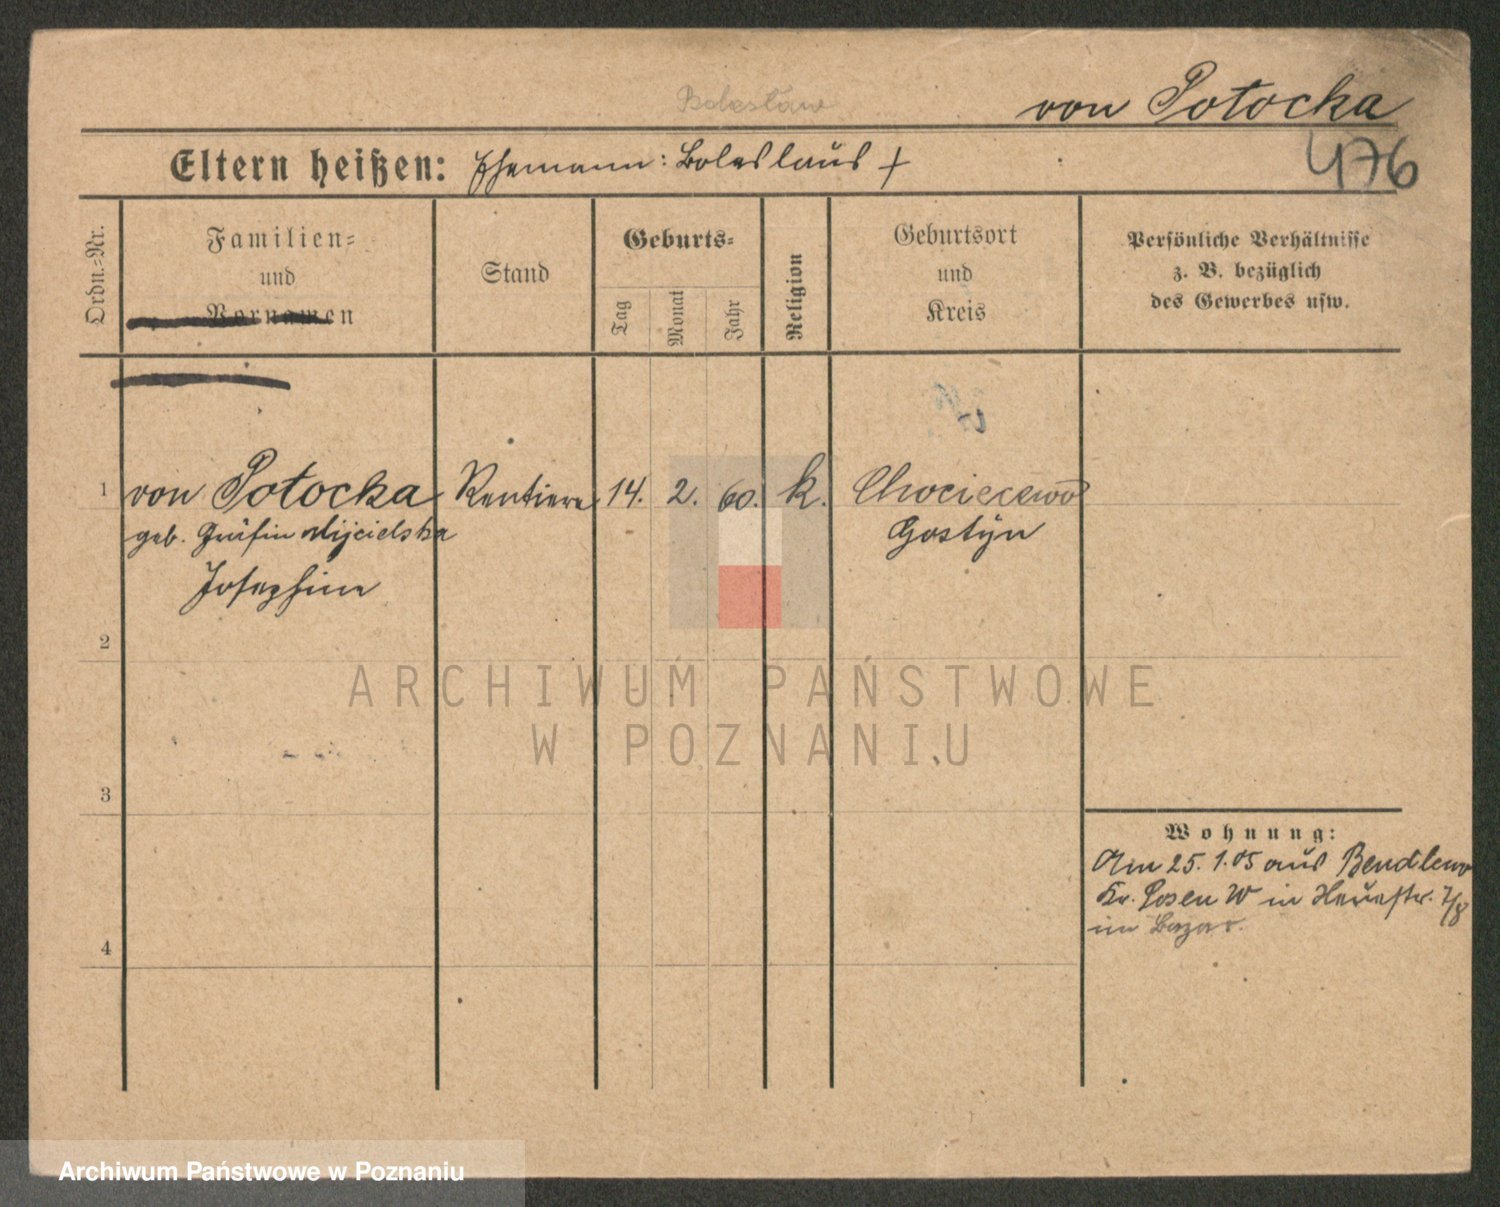 Bolesław
von Potocka
Eltern heißen: Ehemann: Boleslaus +
476
Ordn.-Nr.
Familien-
und
Vornamen
Stand
Geburts-
Tag
Monat
Jahr
Religion
Geburtsort
und
Kreis
Persönliche Verhältnisse
z. B. bezüglich
des Gewerbes usw.
1 von Potocka Rentiere 14. 2. 60. k. Chociecewo
geb. Gräfin Mijcielska Gostýn
Josephine
2
ARCHIWUM PAŃSTWOWE
W POZNANIU
3
Wohnung:
Am 25.1.05 aus Bendlewo
Kr. Posen W in Neuestr. 7/8
im Bazar.
4
Archiwum Państwowe w Poznaniu